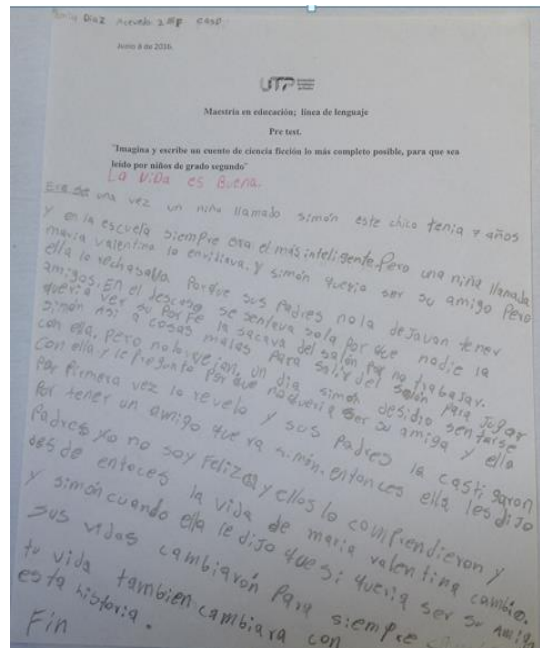 Diaz Acevedo 2 CASD
Junio 8 de 2016.
UTP
Maestria en educación; línea de lenguaje
Pre test.
"Imagina y escribe un cuento de ciencia ficción lo más completo posible, para que sea
leído por niños de grado segundo"
La ViDa es Buena.
Era se una vez un niño llamado simón este chico tenia 7 años
y en la escuela siempre era el más inteligente. Pero una niña llamada
maria valentina lo envidiava. y simón queria ser su amigo Pero
ella lo rechasava Porque sus Padres no la dejavan tener
amigos. En el descanso se sentava sola por que nadie la
queria ver su Porfe la sacava del salón por no trabajar.
simón asi a cosas malas Para salir del salón Para jugar
con ella, Pero no lo que ian, un dia simon desidio sentarse
con ella y le Pregunto Por que no queria ser su amiga y ella
Por Primera vez lo revelo y sus Padres la castigaron
Por tener un amigo que ra simón, entonces ella les dijo
Padres yo no soy Feliz y ellos lo comprendieron y
des de entoces la vida de maria valentina cambio.
y simón cuando ella le dijo que si queria ser su amiga
sus vidas cambiarón Para siempre
tu vida tambien cambiara con
esta historia.
Fin